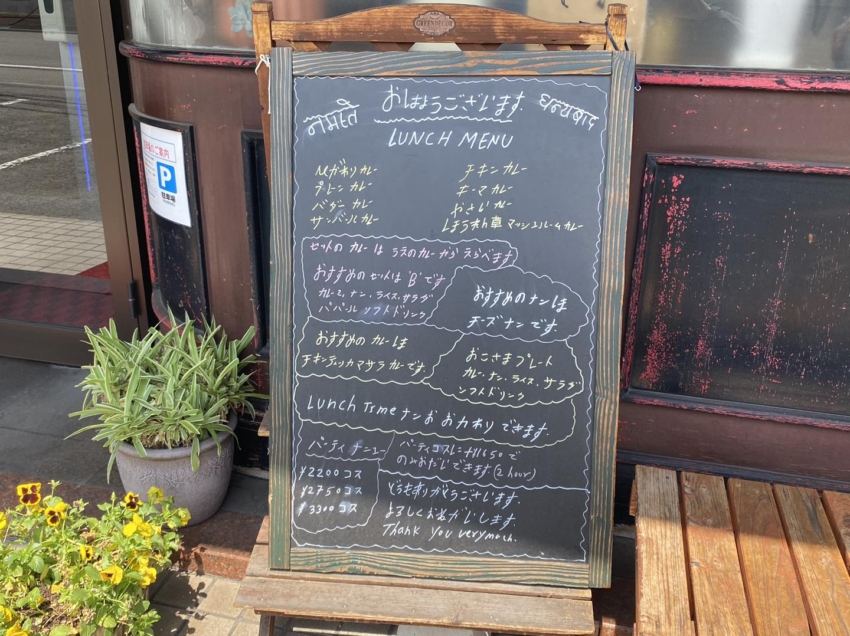 GREENDECOR
नमस्ते
おしょうございます
धन्यवाद
LUNCH MENU
Nがわりカレー
チキンカレー
チレンカレー
キーマカレー
バターカレー
やさいカレー
サンバールカレー
ほうれん草マッシュルームカレー
セットのカレーは うえのカレーから えらべます
おすすめのセットは"B"です
カレー2、ナン、ライス、サラダ
パパール ソフトドリンク
おすすめのナンは
チーズナンです
おすすめのカレーは
チキンティッカマサラカレーです
おこさまプレート
カレー、ナン、ライス、サラダ
ソフトドリンク
Lunch Time ナンおおかわりできます.
パーティメニュー
¥2200コス
¥2750コス
¥3300コス
パーティコスに+¥1650で
のみおだいできます(2 hour)
どうもありがとうございます.
よろしくおねがいします
Thank you verymach.
のご案内
P
駐車場